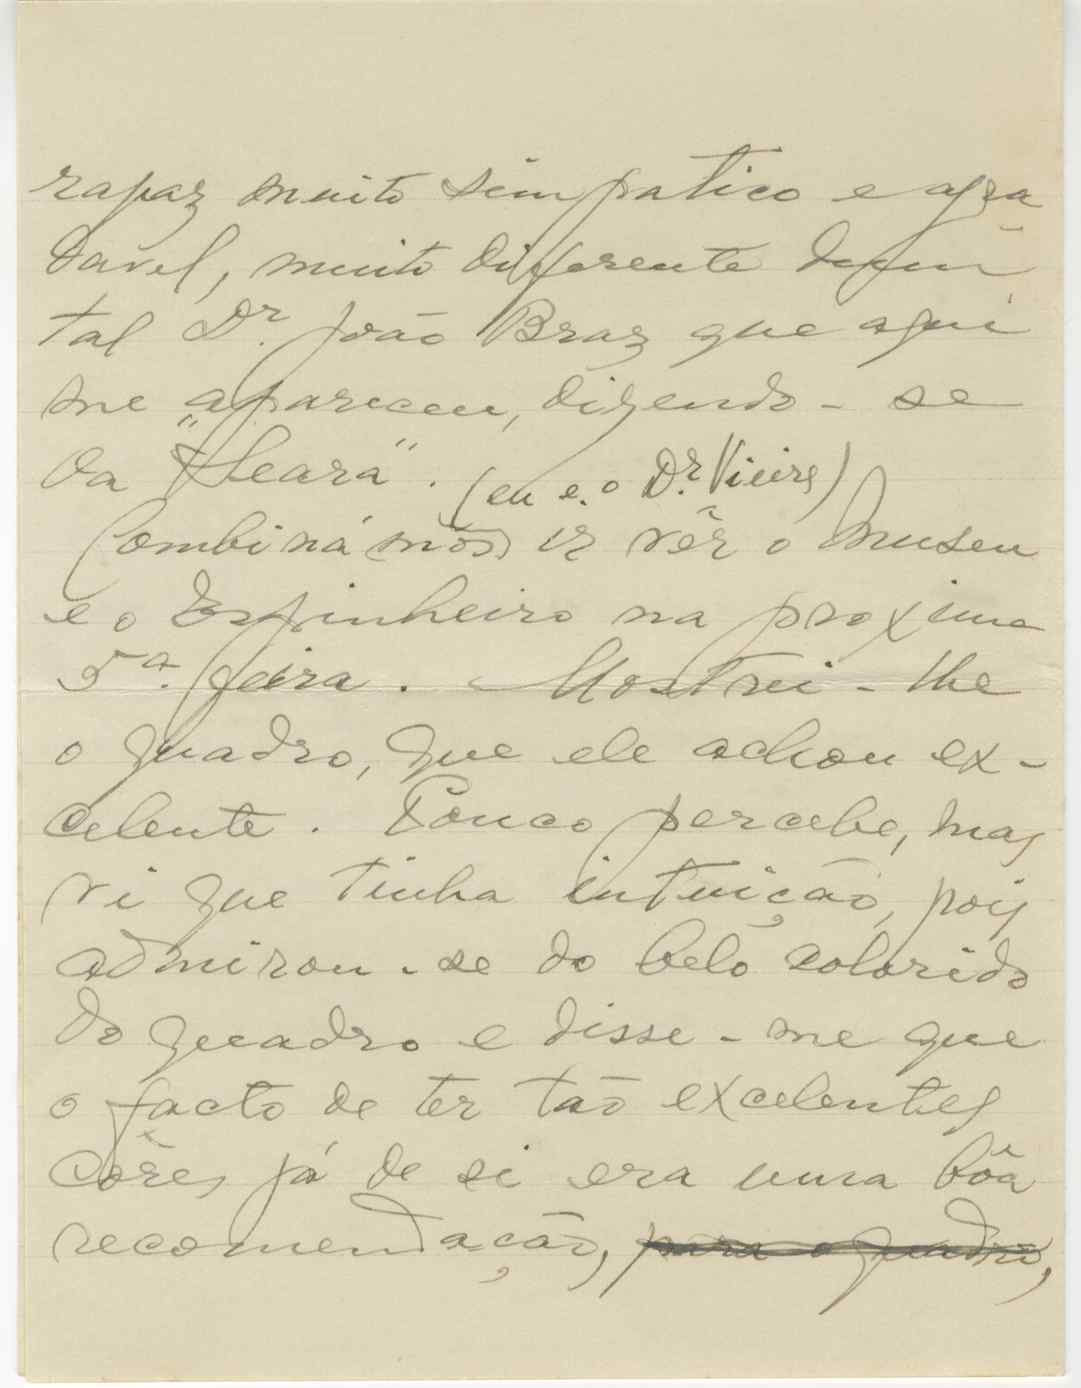 rapaz muito simpatico e agra
davel, muito differente dum
tal Dr. João Braz que aqui
me apareceu, dizendo-se
da "Seara".
(eu e o Dr. Vieira)
Combinámos ir vêr o Museu
e o Espinheiro na proxima
5ª. feira. Mostrei-lhe
o quadro, que ele achou ex-
celente. Pouco percebe, mas
vi que tinha intuição, pois
admirou-se do belo colorido
do quadro e disse-me que
o facto de ter tão excelentes
côres já de si era uma bôa
recomendação, para o quadro,